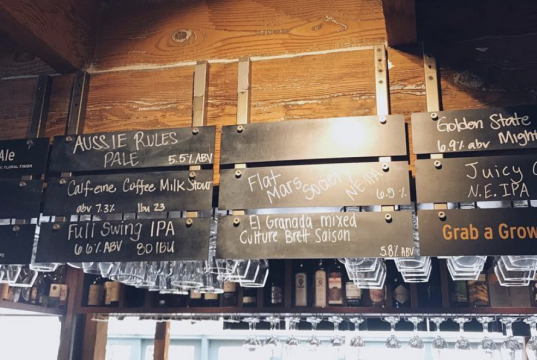 Ale
FLORAL FINISH
AUSSIE RULES
PALE 5.5% ABV
Calf-eine Coffee Milk Stout
abv 7.3% Ibu 23
Full Swing IPA
6.6% ABV 80 IBU
Flat
Mars Society NEIPA
6.9%
El Granada mixed
Culture Brett Saison
5.8% ABV
Golden State
6.9% abv Might
Juicy
N.E. IPA
Grab a Grow